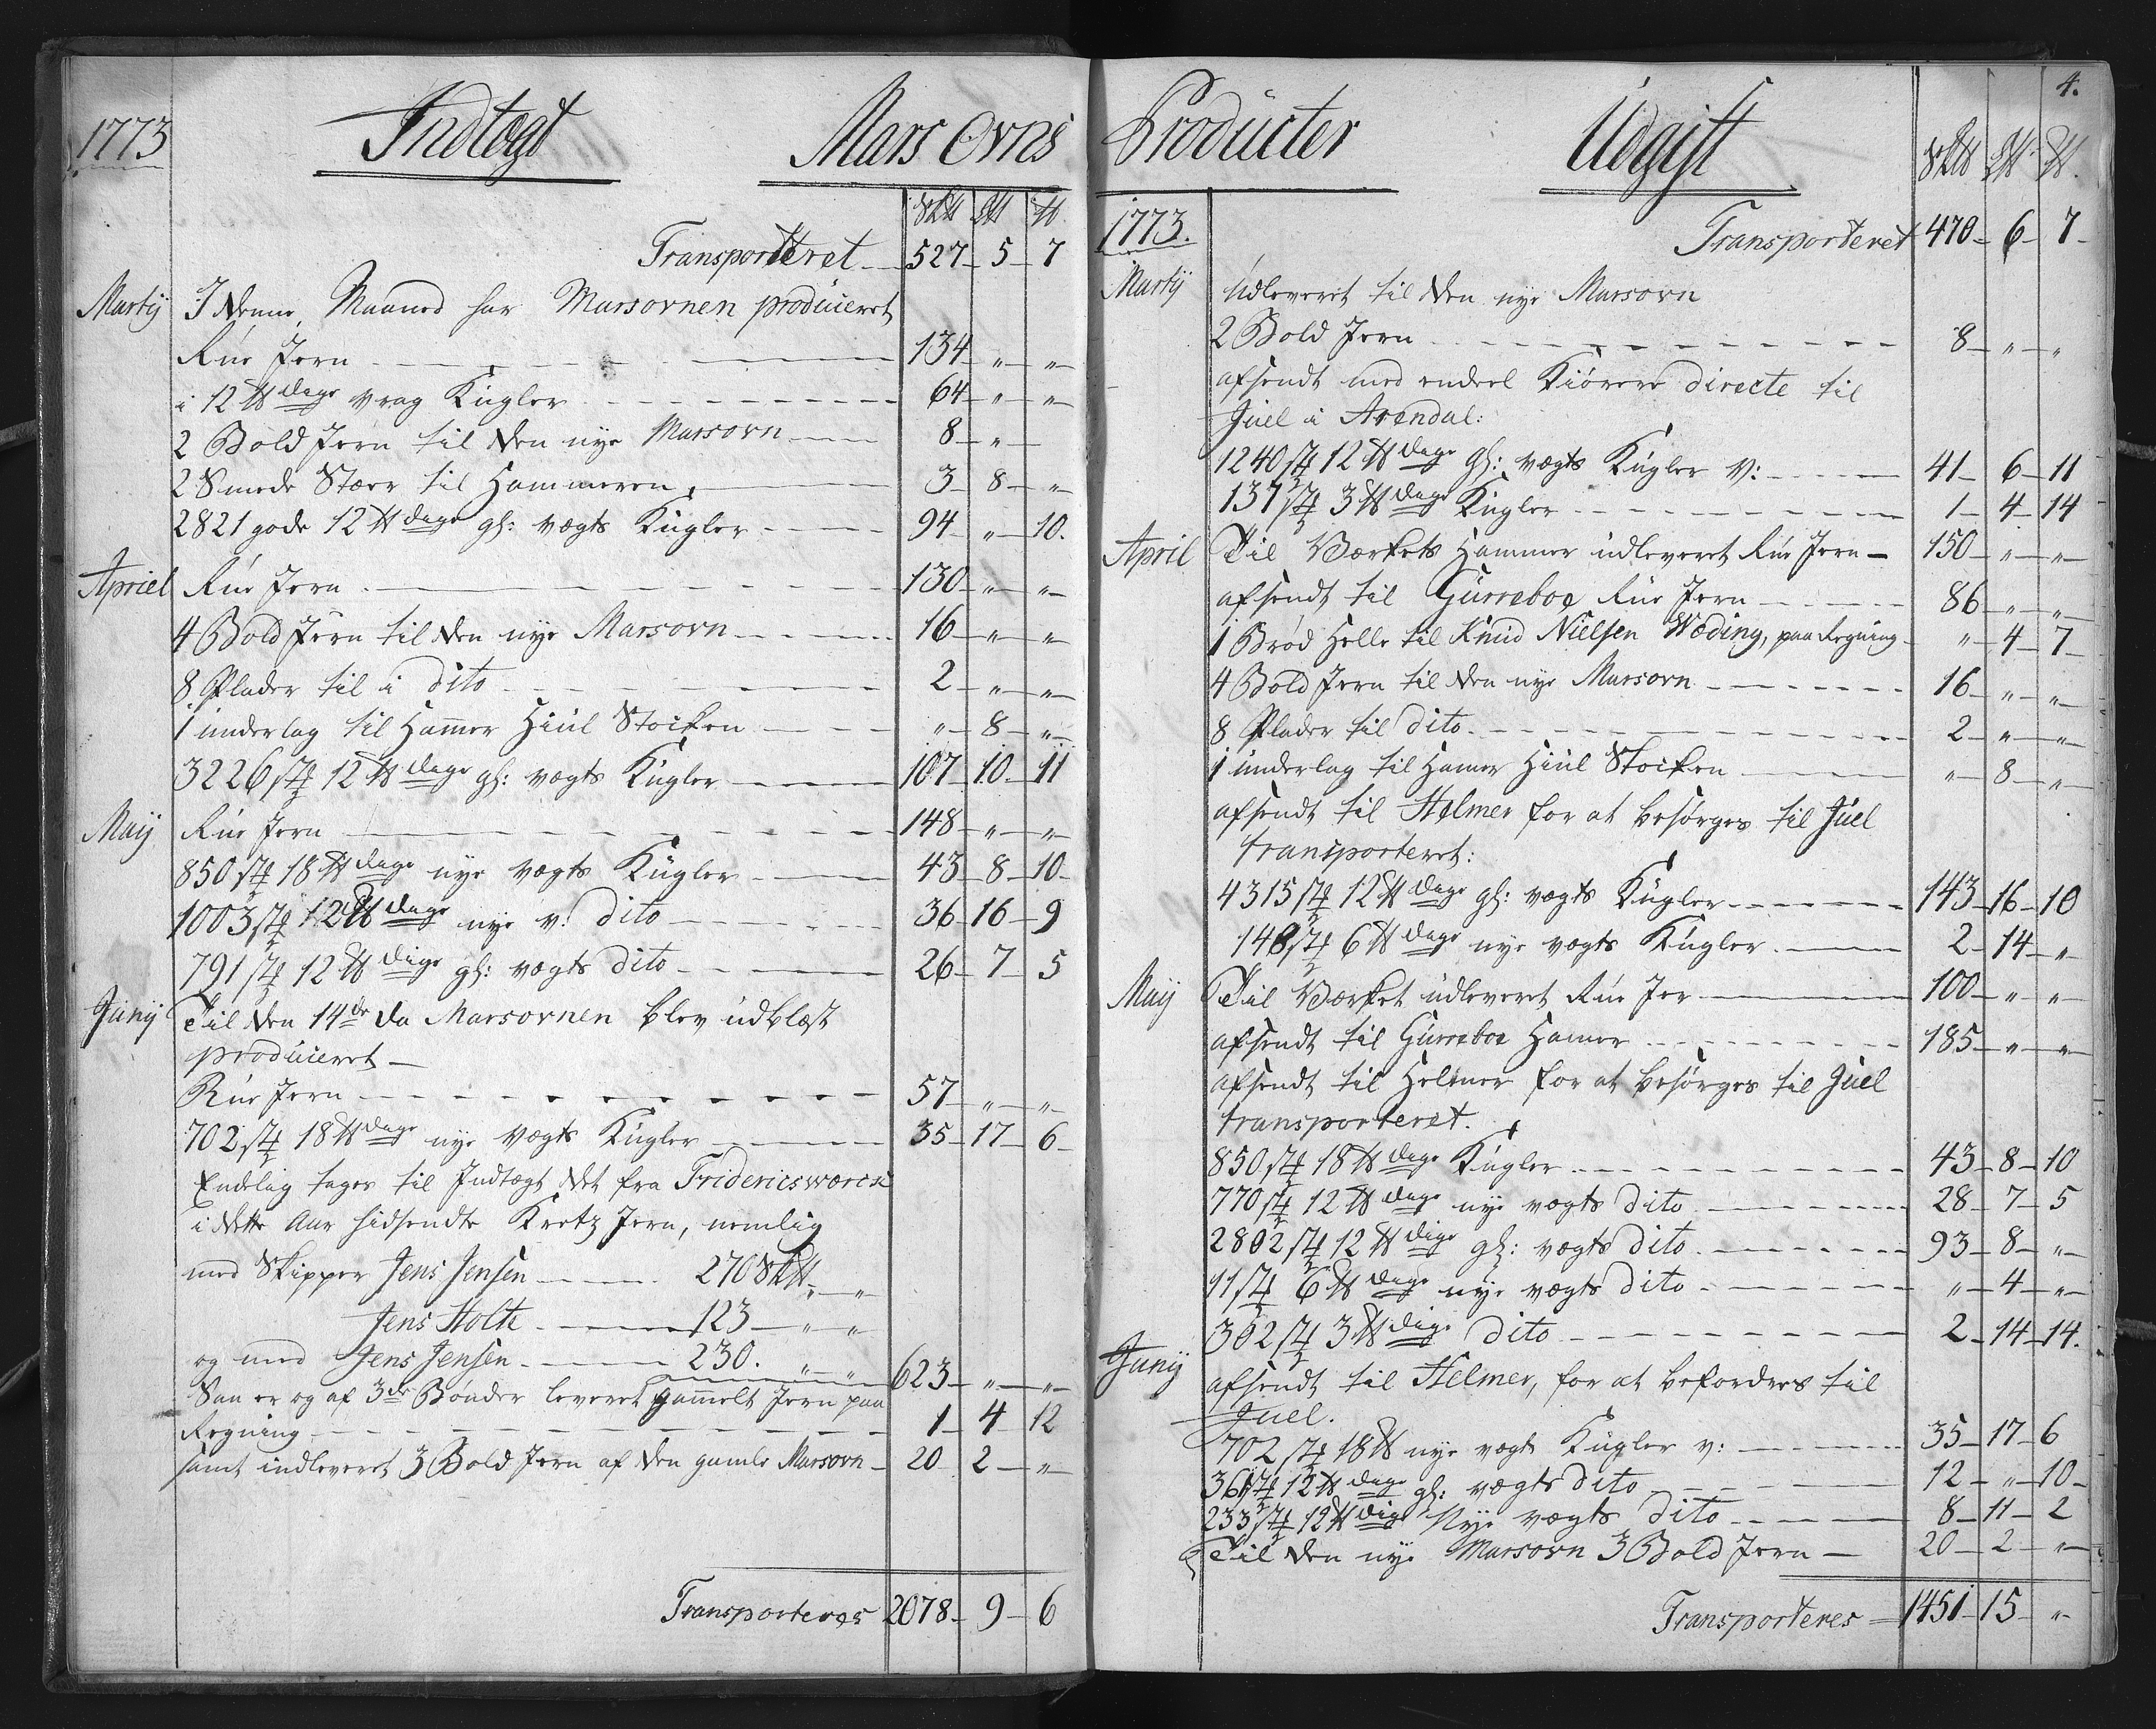 1773 Indtægt Mars Ovns
Sk℔ L℔ ℔
Transporteret 527 5 7
Martÿ I denne Maaned har Marsovnen produceret
Rue Jern 134 " "
i 12 ℔dige vrag Kugler 64 " "
2 Bold Jern til den nye Marsovn 8 "
2 Smede Stæer til Hammeren 3 8 "
2821 gode 12 ℔dige gl: vægts Kugler 94 " 10.
Apriel Rue Jern 130 " "
4 Bold Jern til den nye Marsovn 16 " "
8 Plader til i dito 2 " "
1 underlag til Hamer Hiül Stocken " 8 "
3226 st 12 ℔dige gl: vægts Kugler 107 10 11
Maÿ Rue Jern 148 " "
850 st 18 ℔dige nye vægts Kugler 43 8 10
1003 st 12 ℔dige nye v: dito 36 16 9
791 st 12 ℔dige gl: vægts dito 26 7 5
Junÿ Til den 14de da Marsovnen blev udblæst
produceret
Rue Jern 57 " "
702 st 18 ℔dige nye vægts Kugler 35 17 6
Endelig tages til Indtægt det fra Fridericsværck
i dette Aar hidsendte Kretz Jern, nemlig
med Skipper Jens Jensen 270 Sk℔ " "
Jens Holte 123 " "
og med Jens Jensen 230. " " 623 " "
Saa er og af 3de Bønder leveret gamelt Jern paa
Regning 1 4 12
samt indleveret 3 Bold Jern af den gamle Marsovn 20 2 "
Transporteres 2078 9 6
4.
Producter Udgift Sk℔ L℔ ℔.
1773. Transporteret 470 6 7
Martÿ Udleveret til den nye Marsovn
2 Bold Jern 8 " "
afsendt med endeel Kiørere directe til
Juel i Arendal:
1240 st 12 ℔dige gl: vægts Kugler v: 41 6 11
137 st 3 ℔dige Kugler 1 4 14
April Til Værkets Hammer udleveret Rue Jern 150 " "
afsendt til Gurreboe Rue Jern 86 " "
1 Brød Helle til Knud Nielsen Wæding, paa Regning " 4 7
4 Bold Jern til den nye Marsovn 16 " "
8 Plader til dito 2 " "
1 underlag til Hamer Hiül Stocken " 8 "
afsendt til Helmer for at besørges til Juel
transporteret:
4315 st 12 ℔dige gl: vægts Kugler 143 16 10
148 st 6 ℔dige nye vægts Kugler 2 14 "
Maÿ Til Værket udleveret Rue Jer 100 " "
afsendt til Gurreboe Hamer 185 " "
afsendt til Helmer for at besørges til Juel
transporteret.
850 st 18 ℔dige Kugler 43 8 10
770 st 12 ℔dige nye vægts dito 28 7 5
2802 st 12 ℔dige gl: vægts dito 93 8 "
11 st 6 ℔dige nye vægts dito " 4 "
302 st 3 ℔dige dito 2 14 14.
Junÿ afsendt til Helmer, for at befordres til
Juel.
702 st 18 ℔ nye vægts Kugler v: 35 17 6
361 st 12 ℔dige gl: vægts dito 12 " 10
233 st 12 ℔dige Nye vægts dito 8 11 2
Til den nye Marsovn 3 Bold Jern 20 2 "
Transporteres 1451 15 "